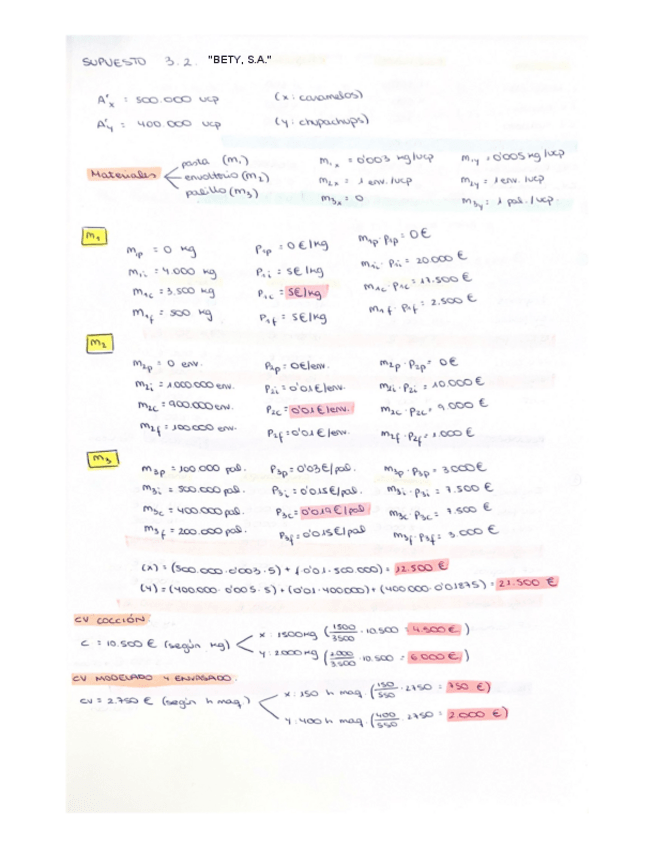 SUPUESTO 3.2. "BETY, S.A."
A'x = 500.000 ucp (x: caramelos)
A'y = 400.000 ucp (y: chupachups)
Materiales
pasta (m1)
envoltorio (m2)
palillo (m3)
m1x = 0'003 kg/ucp
m2x = 1 env./ucp
m3x = 0
m1y = 0'005 kg/ucp
m2y = 1 env. /ucp
m3y = 1 pal. / ucp.
m1
m1p = 0 kg P1p = 0 €/kg m1p · P1p = 0 €
m1i = 4.000 kg P1i = 5 €/kg m1i · P1i = 20.000 €
m1c = 3.500 kg P1c = 5€/kg m1c · P1c = 17.500 €
m1f = 500 kg P1f = 5€/kg m1f · P1f = 2.500 €
m2
m2p = 0 env. P2p = 0€/env. m2p · P2p = 0 €
m2i = 1000.000 env. P2i = 0'01 €/env. m2i · P2i = 10.000 €
m2c = 900.000 env. P2c = 0'01 €/env. m2c · P2c = 9.000 €
m2f = 100.000 env. P2f = 0'01 €/env. m2f · P2f = 1.000 €
m3
m3p = 100.000 pal. P3p = 0'03 €/pal. m3p · P3p = 3000 €
m3i = 500.000 pal. P3i = 0'015 €/pal. m3i · P3i = 7.500 €
m3c = 400.000 pal. P3c = 0'019 €/pal m3c P3c = 7.500 €
m3f = 200.000 pal. P3f = 0'015 €/pal m3f · P3f = 3.000 €
(x) = (500.000 · 0'003 · 5) + (0'01 · 500 000) = 12.500 €
(y) = (400.000 · 0'005 · 5) + (0'01 · 400000) + (400 000 · 0'01875) = 21.500 €
CV COCCIÓN:
C = 10.500 € (según kg)
x: 1500 kg (1500/3500 · 10.500 = 4.500 €)
y: 2000 kg (2000/3500 · 10.500 = 6.000 €)
CV MODELADO Y ENVASADO:
CV = 2.750 € (según h maq.)
x: 150 h maq. (150/550 · 2750 = 750 €)
y: 400 h maq. (400/550 · 2750 = 2.000 €)